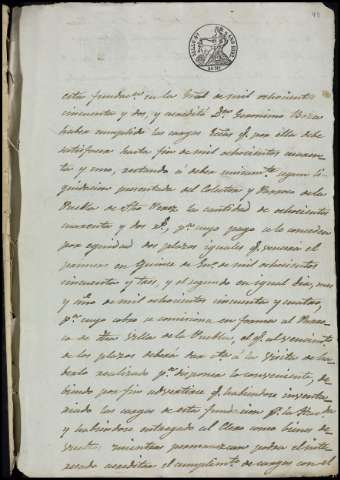 esta fundac.n en la Total de mil ochocientos
cincuenta y dos, y acreditó D.n Geronimo
haber cumplido las cargas q.e por ella debe
satisfacer hasta fin de mil ochocientos cuaren-
ta y uno, restando á deber segun li-
quidacion presentada del Colector y Parroco de la
Puebla de la cantidad de ochocientos
cuarenta y dos r.s, p.a cuyo pago se le conceden
por equidad dos plazos iguales q.e vencerá el
primero en Quince de En.o de mil ochocientos
cincuenta y tres, y el segundo en igual dia, mes
y de mil ochocientos cincuenta y cuatro,
p.a cuyo cobro se comisiona en forma al Parro-
co de Villa de la Puebla, el q.e al vencimiento
de los plazos deberá dar á la Visita de ha-
berlo realizado p.a disponer lo conveniente, de-
biendo por fin advertirse q.e habiendose inventa-
riado las cargas de esta fundacion p.r la
y habiendose entregado al Clero como bienes de
mientras permanezcan podrá el inte-
resado acreditar el cumplim.to de cargas con el